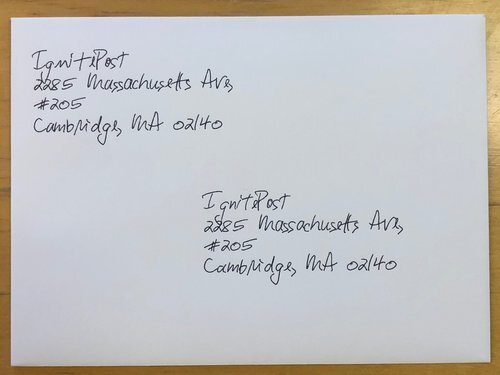 IgnitePost
2285 Massachusetts Ave,
#205
Cambridge, MA 02140
IgnitePost
2285 Massachusetts Ave,
#205
Cambridge, MA 02140